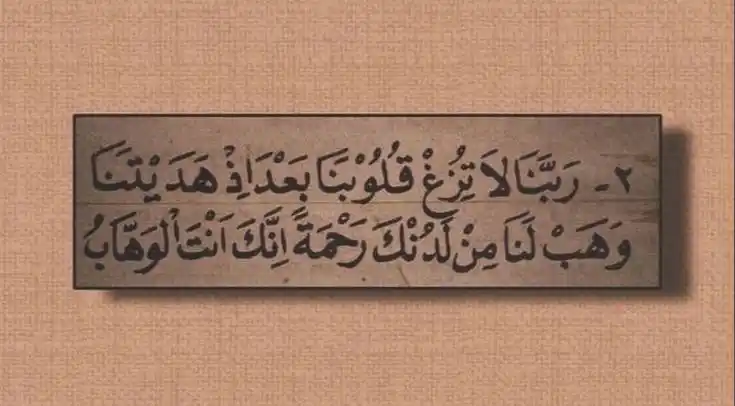 ٢- رَبَّنَا لَا تُزِغْ قُلُوْبَنَا بَعْدَ اِذْ هَدَيْتَنَا
وَهَبْ لَنَا مِنْ لَدُنْكَ رَحْمَةً اِنَّكَ اَنْتَ الْوَهَّابُ